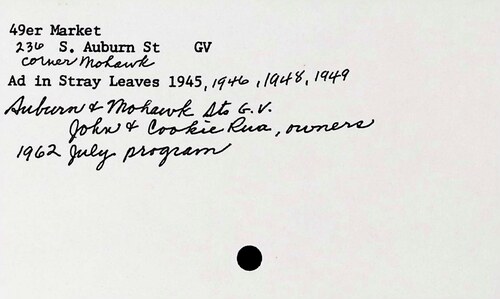 49er Market
236 S. Auburn St GV
corner Mohawk
Ad in Stray Leaves 1945, 1946, 1948, 1949
Auburn & Mohawk Sts G.V.
John & Cookie Rua, owners
1962 July program